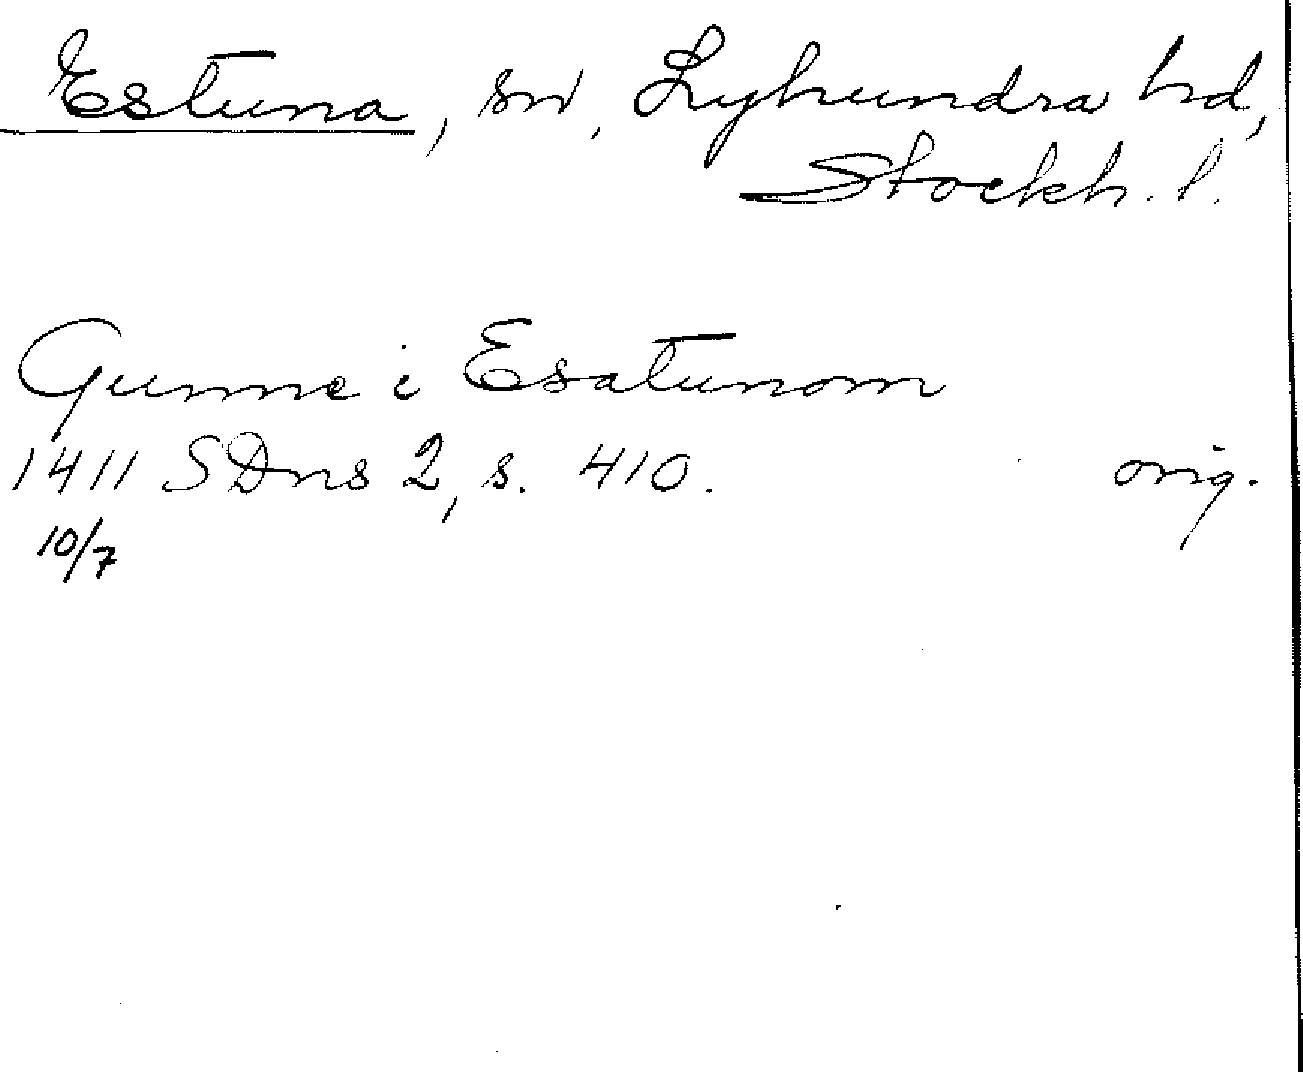 Estuna, sn, Lyhundra hd,
Stockh. l.
Gunne i Esatunom
1411 SDns 2, s. 410. orig.
10/7